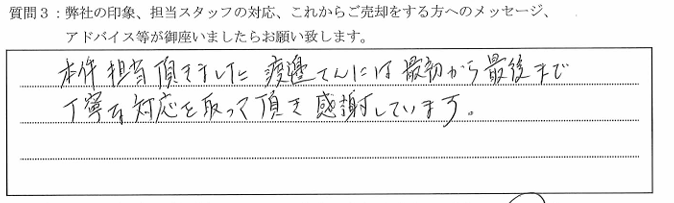 質問３：弊社の印象、担当スタッフの対応、これからご売却をする方へのメッセージ、
アドバイス等が御座いましたらお願い致します。
本件担当頂きました渡邉さんには最初から最後まで
丁寧な対応を取って頂き感謝しています。